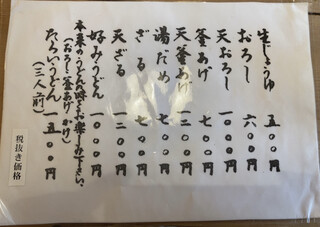 生じょうゆ 五〇〇円
おろし 六〇〇円
天おろし 一〇〇〇円
釜あげ 七〇〇円
天釜あげ 一二〇〇円
湯だめ 七〇〇円
ざる 七〇〇円
天ざる 一二〇〇円
好みうどん 一〇〇〇円
本来のうどんの味をお楽しみ下さい
(おろし・釜あげ・かけ)
たらいうどん 一五〇〇円
(三人前)
税抜き価格